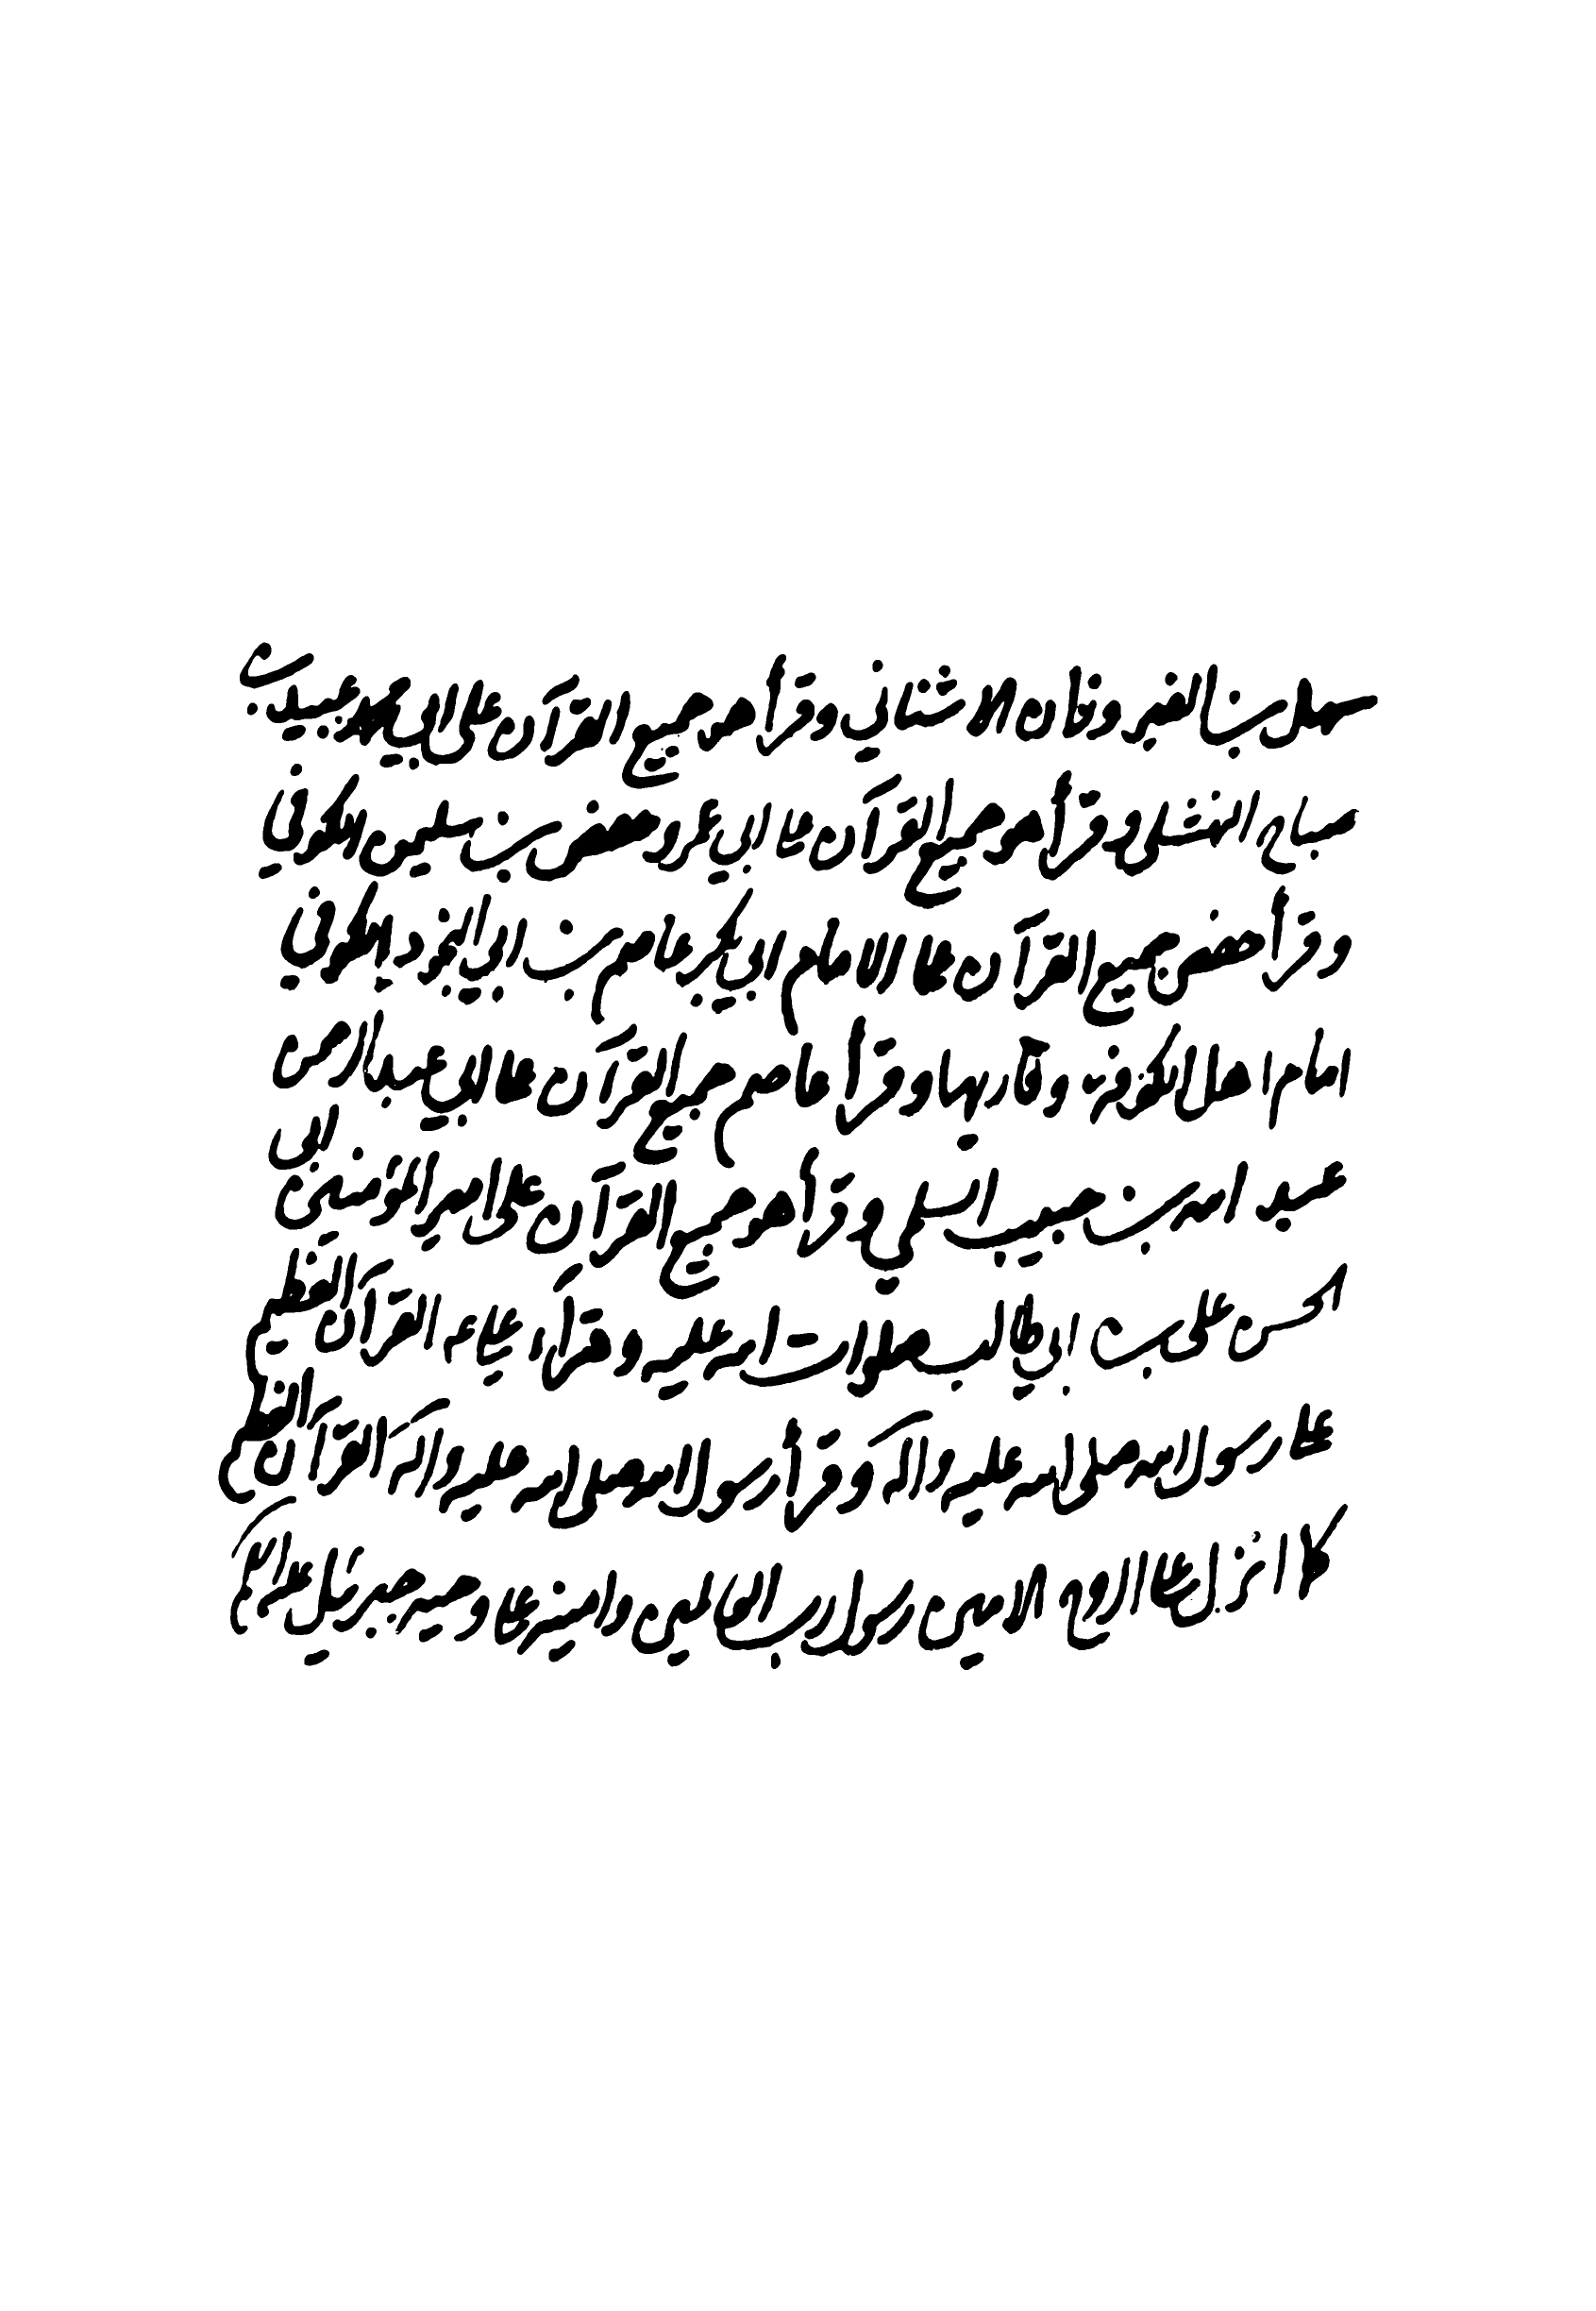 سهل بن الفيروزان الاشناني وقرأ هو جميع القرآن على ابي محمد عبيد بن
صباح النهشلي وقرأ هو جميع القرآن على ابي عمرو حفص بن سليمن الكوفي
وقرأ حفص جميع القرآن على الامام ابي بكر عاصم بن ابي النجود الكوفي
امام اهل الكوفة وقاريها وقرأ عاصم جميع القرآن على ابي عبد الرحمن
عبد الله بن حبيب السلمي وقرأ هو جميع القرآن على امير المؤمنين ابي
الحسن علي بن ابي طالب صلوات الله عليه وقرأ علي ع القرآن العظيم
على رسول الله صلى الله عليه وآله وقرأ رسول الله صلى الله عليه وآله القرآن العظيم
كما انزل على الروح الامين رسول رب العالمين وامينه على وحيه جبرئيل عليه السلام